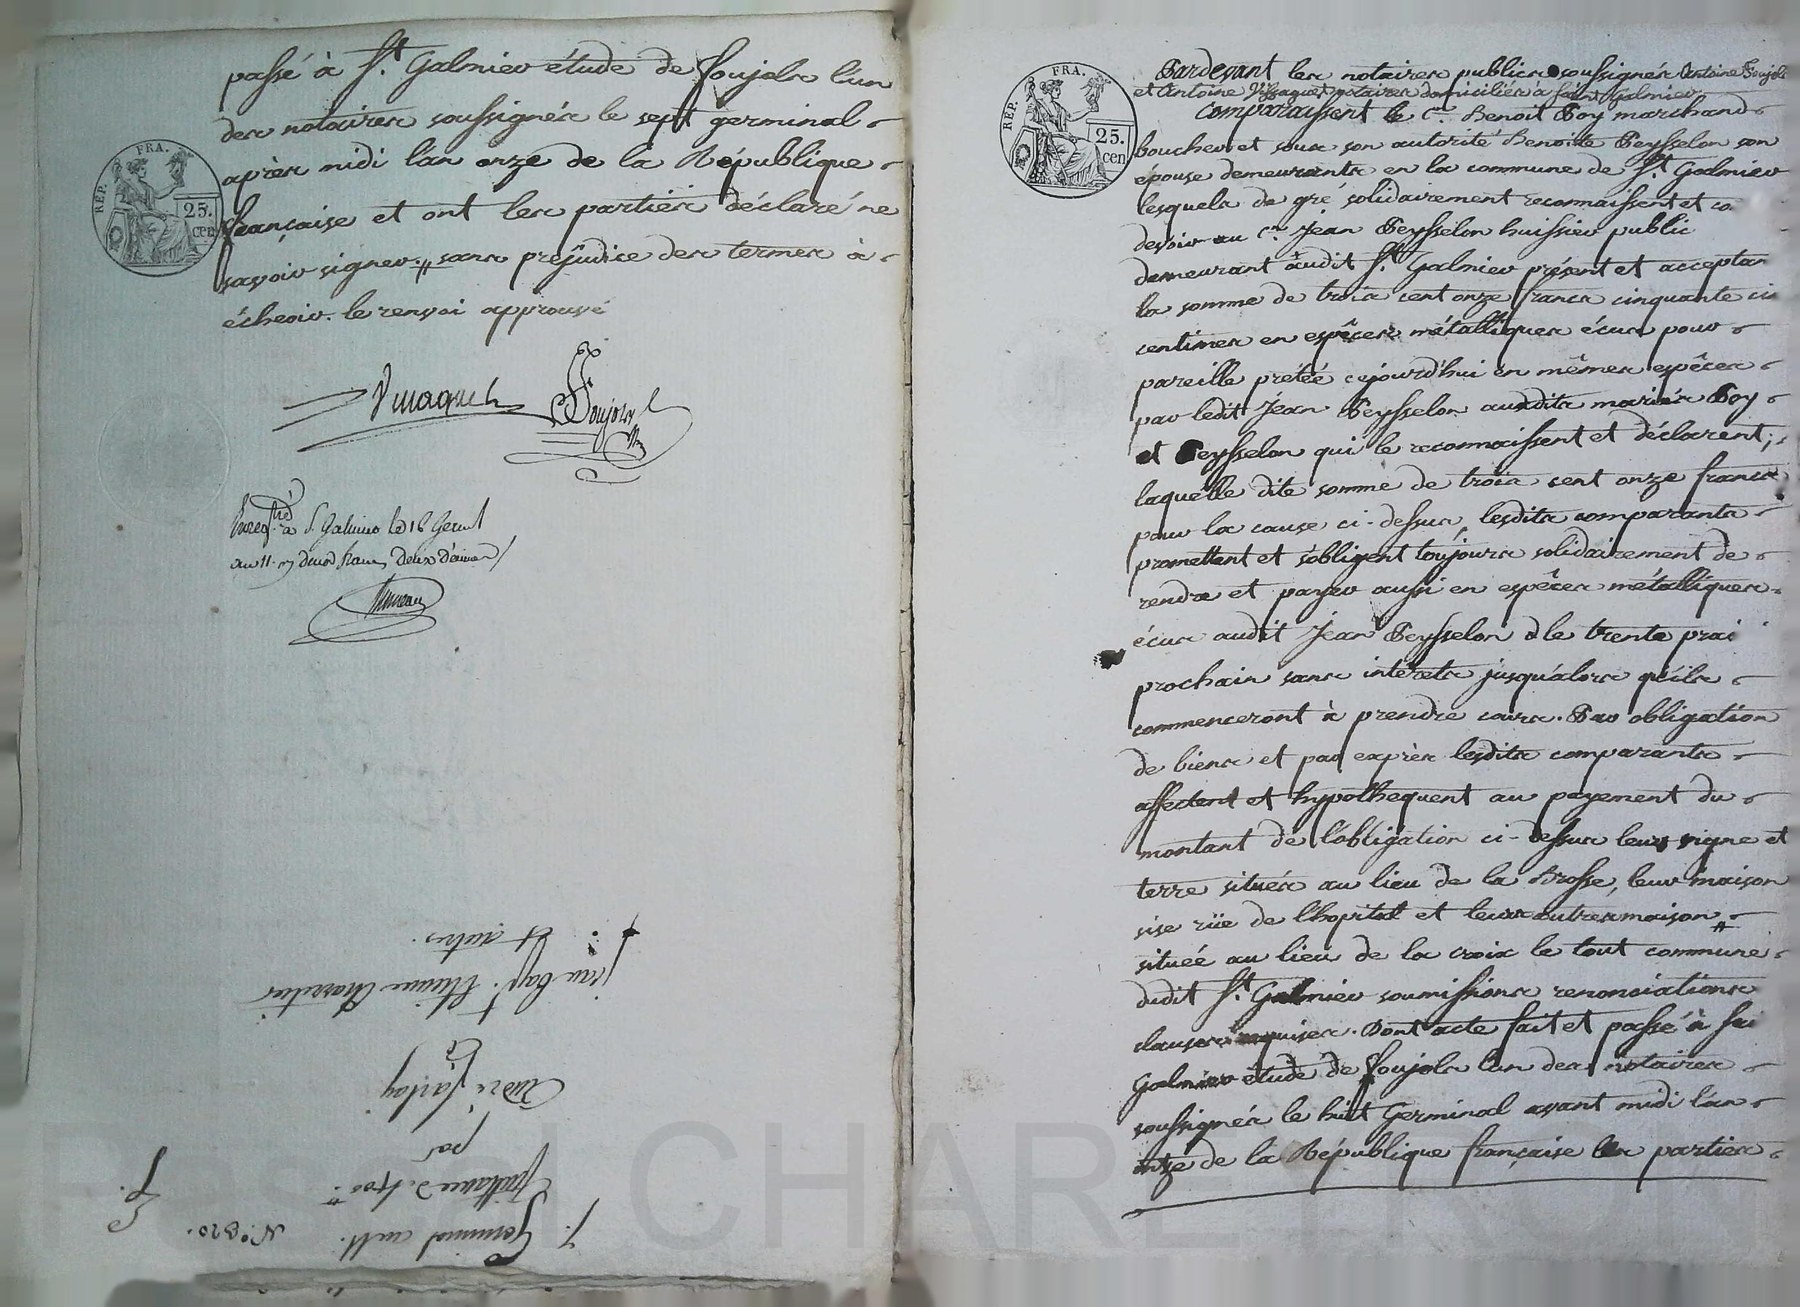 passé à St. Galmier étude de Poujols l'un
des notaires soussignés le sept germinal
après midi l'an onze de la République
française et ont les parties déclaré ne
savoir signer. // sans préjudice des termes à
écheoir. le renvoi approuvé
Poujols
REP. FRA.
25.
cen
Enregtré à St. Galmier le 18 Germl
an 11. deux francs deux décimes
7. Germinal an 11.
N° 320.
Quittance de
par
André
à
jean Bapt. Etienne Charretier
et autres.
REP. FRA.
25.
cen
Pardevant les notaires publics soussignés Antoine Poujols
et Antoine Vissaguet notaires domiciliés à saint Galmier.
Comparaissent le Cn. Benoit Poy marchand
boucher et sous son autorité Benoite Peysselon son
epouse demeurants en la commune de St. Galmier
lesquels de gré solidairement reconnaissent et co
devoir au Cn. Jean Peysselon huissier public
demeurant audit St. Galmier présent et acceptan
la somme de trois cent onze francs cinquante ci
centimes en espêces métalliques écus pour
pareille prétée cejourd'hui en mêmes espêces
par ledit Jean Peysselon auxdits mariés Poy
et Peysselon qui le reconnaissent et déclarent;
laquelle dite somme de trois cent onze francs
pour la cause ci-dessus, lesdits comparants
promettent et s'obligent toujours solidairement de
rendre et payer aussi en espêces métalliques
écus audit Jean Peysselon le trente prai
prochain sans intérets jusqu'alors qu'ils
commenceront à prendre cours. Par obligation
de biens et par exprès lesdits comparants
affectent et hypothequent au payement du
montant de l'obligation ci-dessus leurs vigne et
terre situés au lieu de la Brosse, leur maison
sise rüe de l'hopital et leur autre maison //
située au lieu de la croix le tout commune
dudit St. Galmier soumissions renonciations
clauses requises. Dont acte fait et passé à St
Galmier étude de Poujols l'un des notaires
soussignés le huit Germinal avant midi l'an
onze de la République française les parties
Pascal CHARETRON